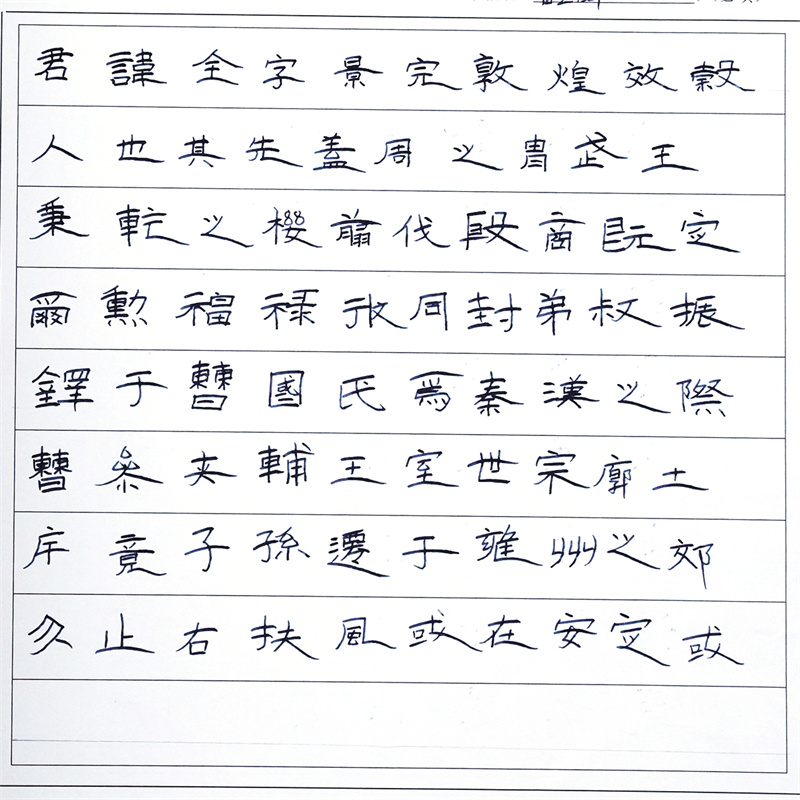 君諱全字景完敦煌效穀
人也其先蓋周之胄武王
秉乾之機翦伐殷商既定
爾勲福祿攸同封弟叔振
鐸于曹國氏焉秦漢之際
曹參夾輔王室世宗廓土
斥竟子孫遷于雍州之郊
分止右扶風或在安定或